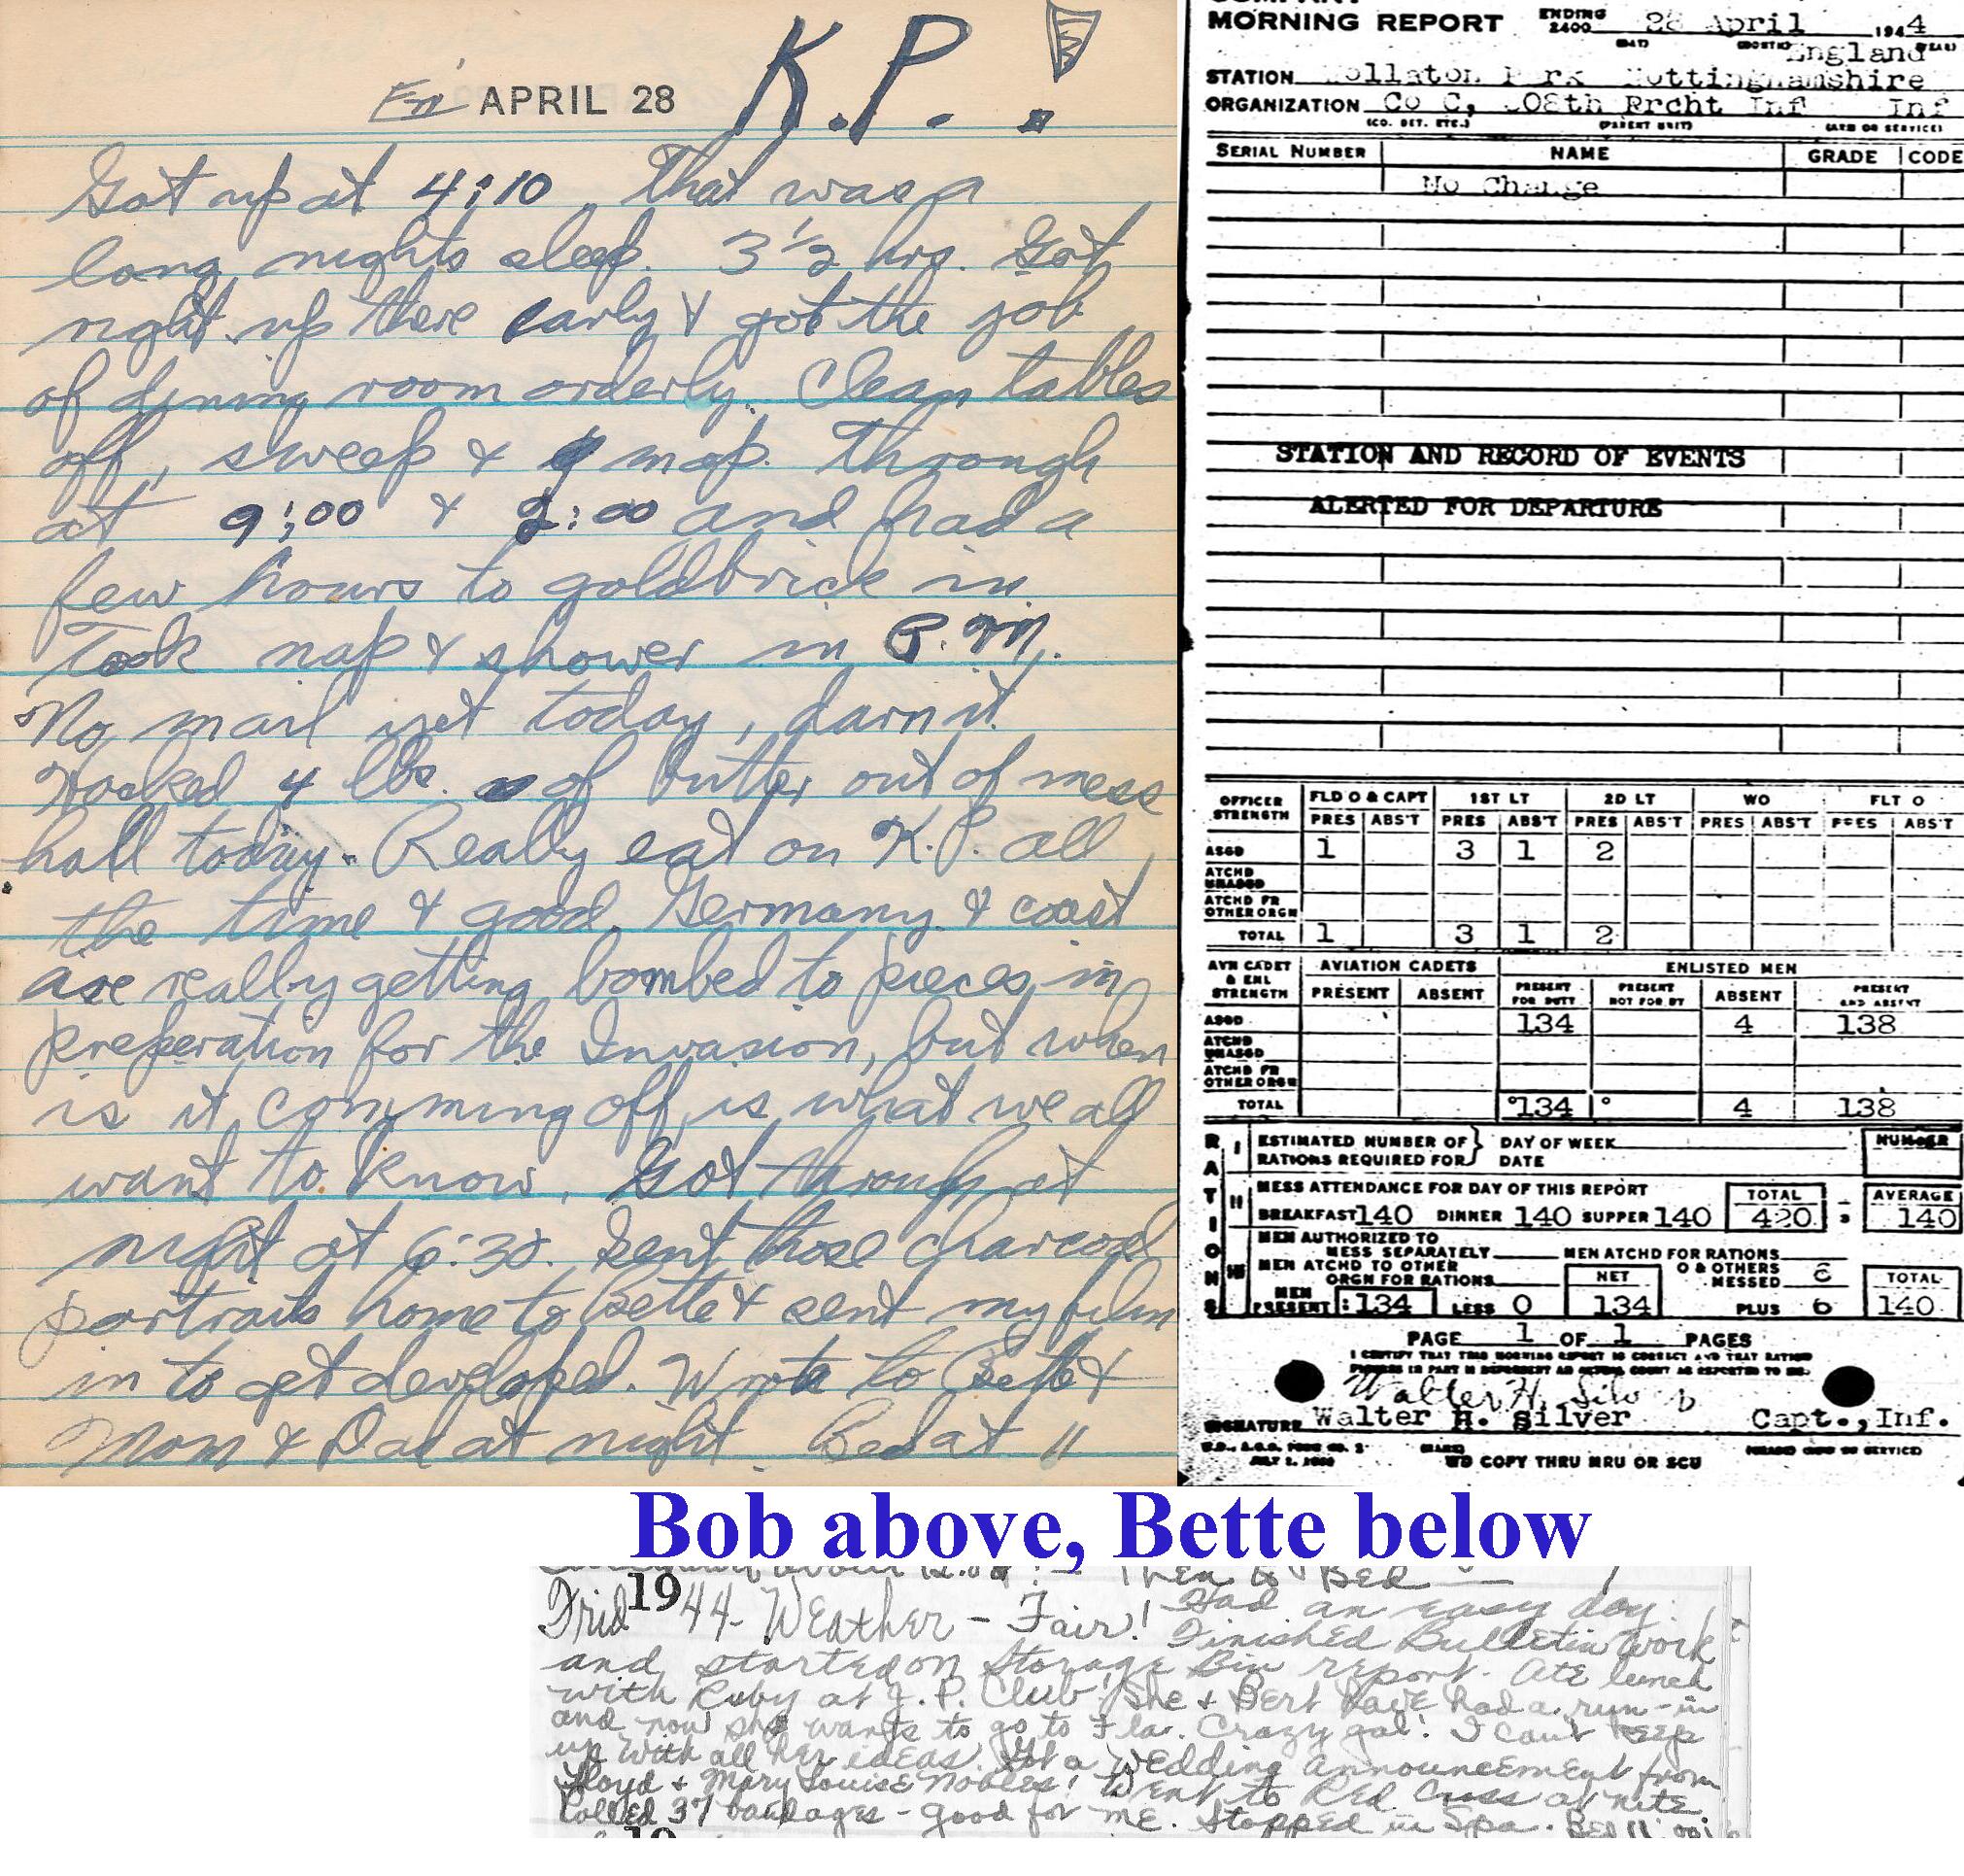 Fri APRIL 28 K.P. !
Got up at 4:10. That was a
long nights sleep. 3 1/2 hrs. Got
right up there early & got the job
of dining room orderly. Clean tables
off, sweep & mop. Through
at 9:00 & 2:00 and had a
few hours to goldbrick in.
Took nap & shower in P.M.
No mail yet today, darn it.
Hooked 4 lbs. of butter out of mess
hall today. Really eat on K.P. all
the time & good. Germany & coast
are really getting bombed to pieces in
preperation for the Invasion, but when
is it comming off, is what we all
want to know. Got through at
night at 6:30. Sent those charcoal
portraits home to Bette & sent my film
in to get developed. Wrote to Bette &
Mom & Dad at night. Bed at 11
MORNING REPORT ENDING 2400 28 April 1944
England
STATION Wollaton Park Nottinghamshire
ORGANIZATION Co C, 508th Prcht Inf Inf
(CO. DET. ETC.) (PARENT UNIT) (ARM OR SERVICE)
SERIAL NUMBER NAME GRADE CODE
No Change
STATION AND RECORD OF EVENTS
ALERTED FOR DEPARTURE
OFFICER STRENGTH FLD O & CAPT 1ST LT 2D LT WO FLT O
PRES ABS'T PRES ABS'T PRES ABS'T PRES ABS'T PRES ABS'T
ASGD 1 3 1 2
ATCHD UNASGD
ATCHD FR OTHER ORGN
TOTAL 1 3 1 2
AVN CADET & ENL STRENGTH AVIATION CADETS ENLISTED MEN
PRESENT ABSENT PRESENT FOR DUTY PRESENT NOT FOR DY ABSENT PRESENT AND ABSENT
ASGD 134 4 138
ATCHD UNASGD
ATCHD FR OTHER ORGN
TOTAL 134 4 138
RATIONS
I ESTIMATED NUMBER OF RATIONS REQUIRED FOR DAY OF WEEK DATE NUMBER
II MESS ATTENDANCE FOR DAY OF THIS REPORT TOTAL AVERAGE
BREAKFAST 140 DINNER 140 SUPPER 140 420 140
III MEN AUTHORIZED TO MESS SEPARATELY MEN ATCHD FOR RATIONS
MEN ATCHD TO OTHER ORGN FOR RATIONS NET O & OTHERS MESSED 6 TOTAL
MEN PRESENT 134 LESS 0 134 PLUS 6 140
PAGE 1 OF 1 PAGES
I CERTIFY THAT THIS MORNING REPORT IS CORRECT AND THAT RATION
Walter H. Silver
SIGNATURE Walter H. Silver Capt., Inf.
WD COPY THRU MRU OR SCU
Bob above, Bette below
Then to Bed
Frid 1944- Weather - Fair! Had an easy day.
Finished Bulletin work
and started on Storage Bin report. Ate lunch
with Ruby at J.P. Club! She & Bert have had a run-in
and now she wants to go to Fla. Crazy gal! I can't keep
up with all her ideas. Got a Wedding announcement from
Floyd & Mary Louise Nobles! Went to Red Cross at nite.
Rolled 37 bandages - good for me. Stopped in Spa. Bed 11:00
19